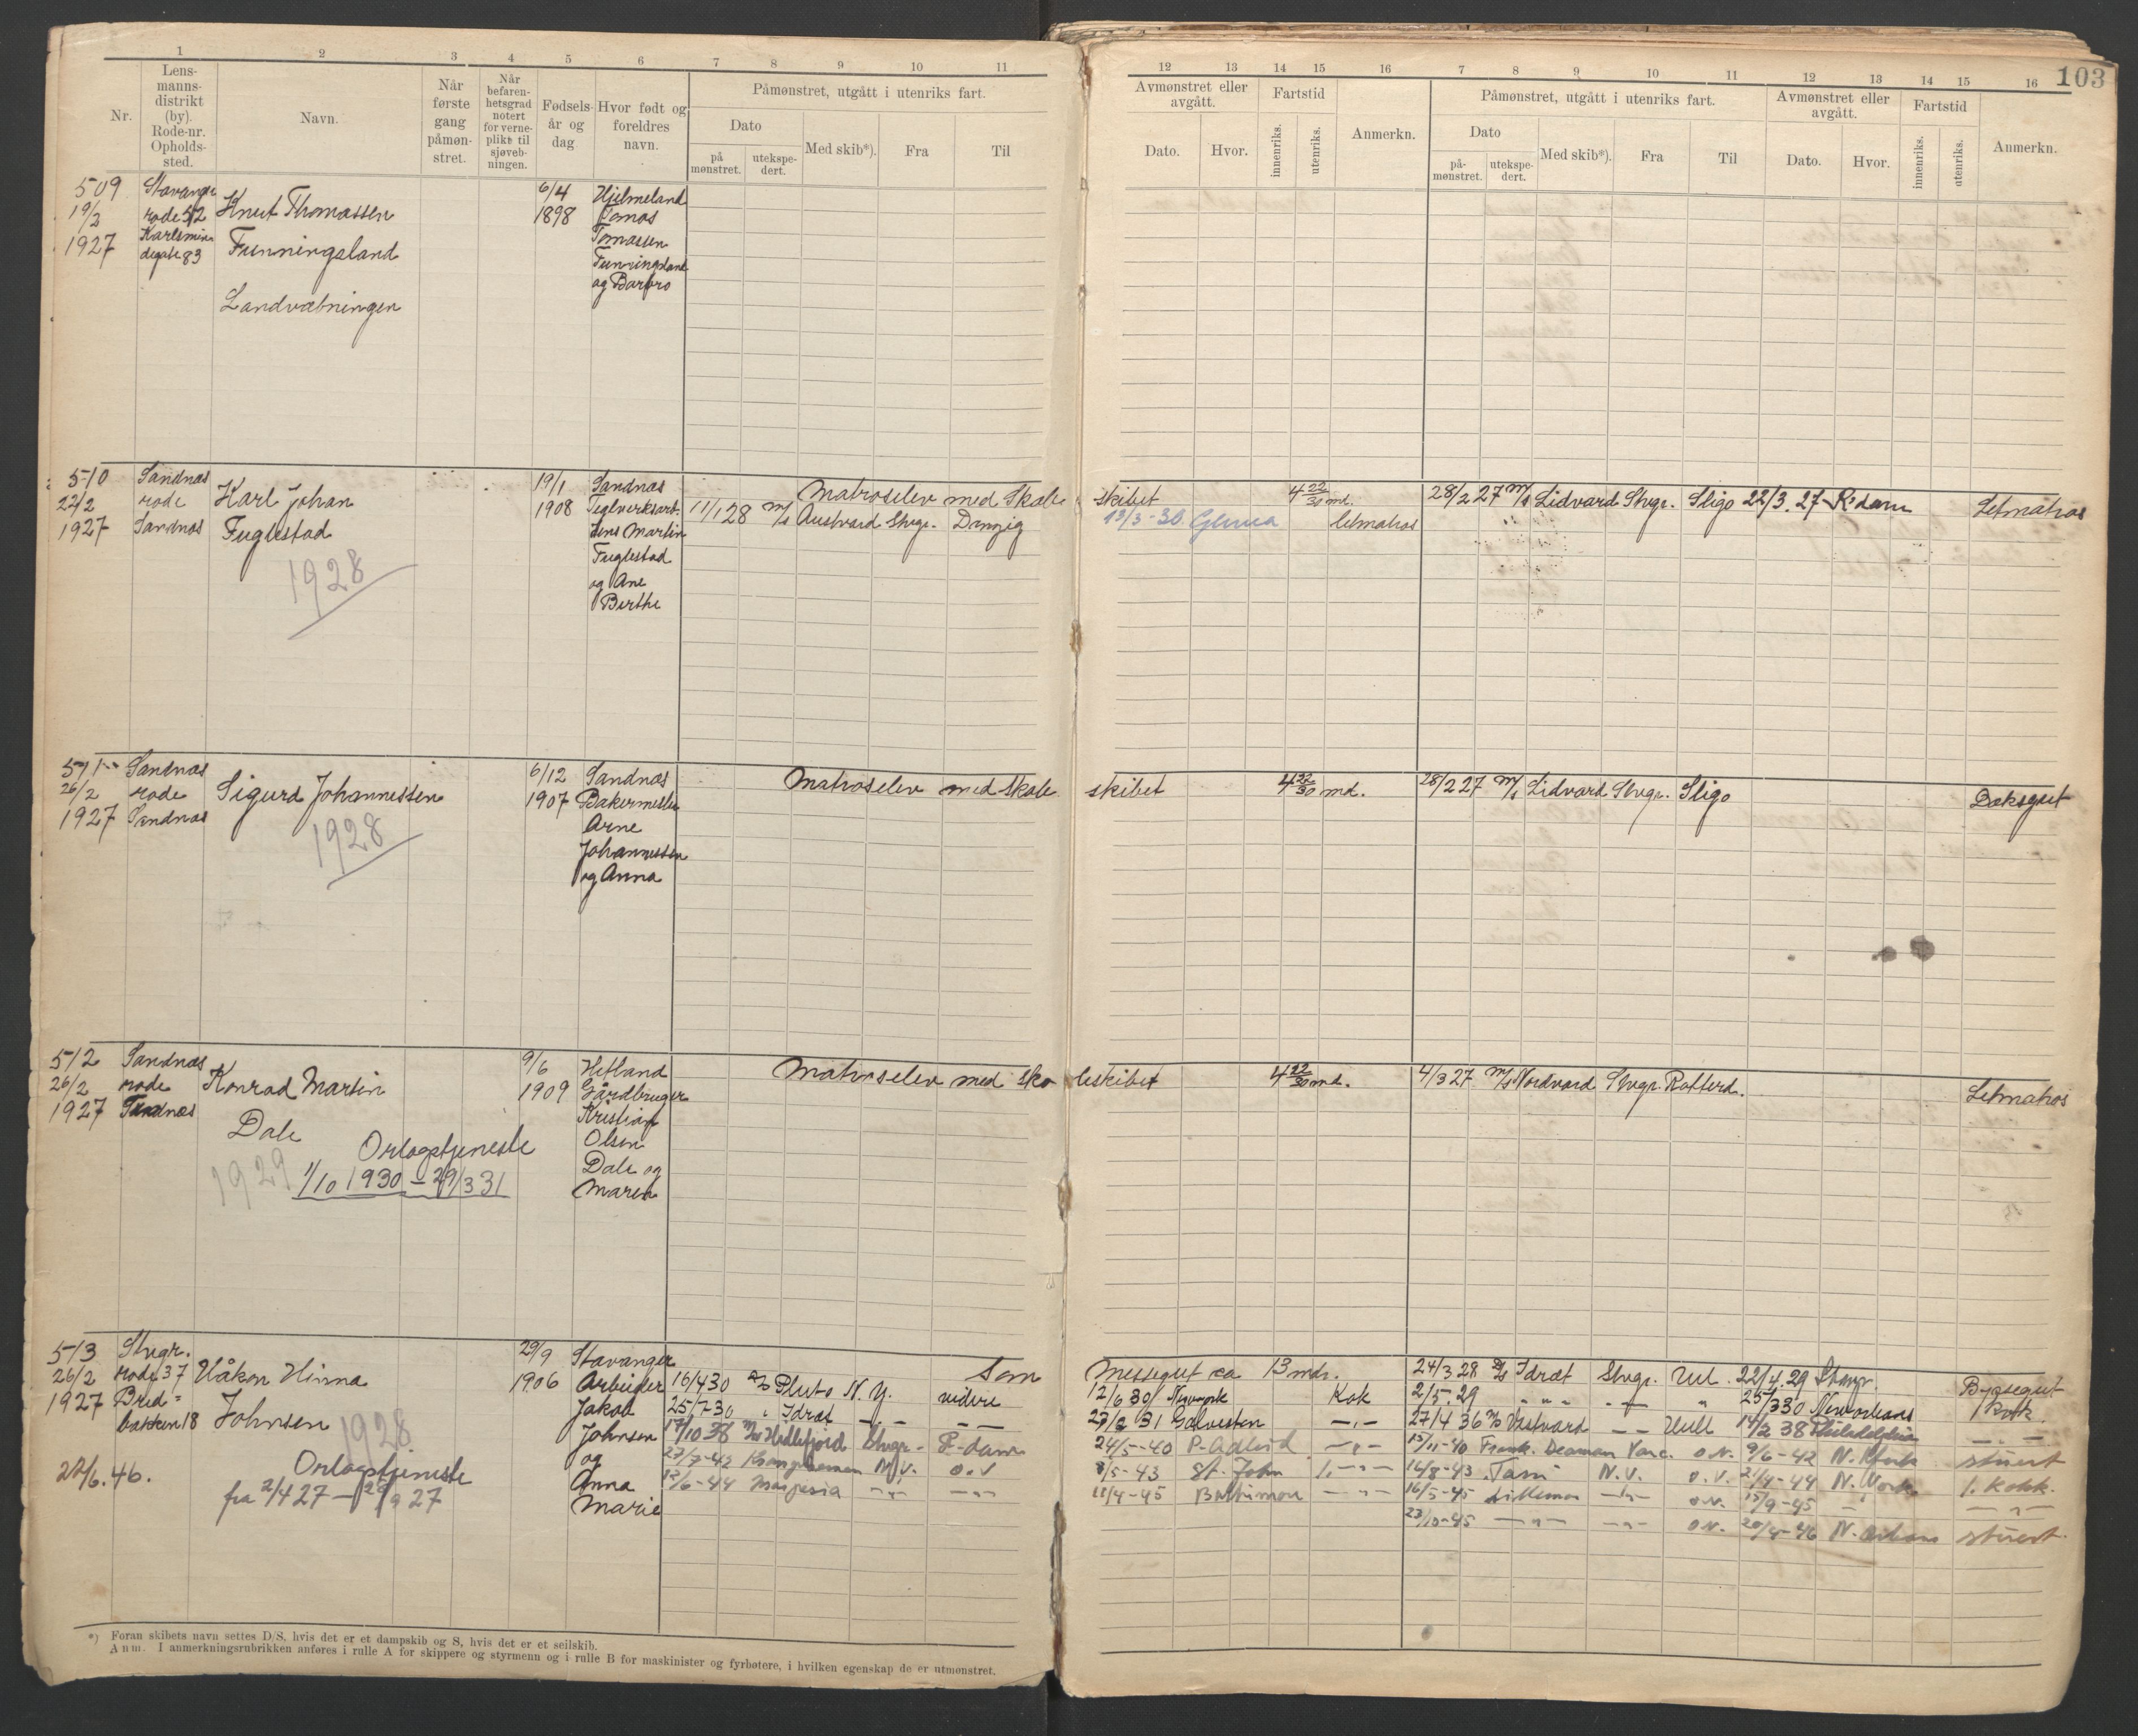 1 2 3 4 5 6 7 8 9 10 11
Nr.
Lens-
manns-
distrikt
(by).
Rode-nr.
Opholds-
sted.
Navn.
Når
første
gang
påmøn-
stret.
Når
befaren-
hetsgrad
notert
for verne-
plikt til
sjøveb-
ningen.
Fødsels-
år og
dag
Hvor født og
foreldres
navn.
Påmønstret, utgått i utenriks fart.
Dato
på
mønstret.
utekspe-
dert.
Med skib*).
Fra
Til
12 13 14 15 16 7 8 9 10 11 12 13 14 15 16
103
Avmønstret eller
avgått.
Dato.
Hvor.
Fartstid
innenriks.
utenriks.
Anmerkn.
Påmønstret, utgått i utenriks fart.
Dato
på-
mønstret.
utekspe-
dert.
Med skib*).
Fra
Til
Avmønstret eller
avgått.
Dato.
Hvor.
Fartstid
innenriks.
utenriks.
Anmerkn.
509
19/2
1927
Stavanger
rode 52
degate 83
Knut Thomassen
Funningsland
Landvæbningen
6/4
1898
Hjelmeland
Tomas
Tomassen
Funningsland
og Barbro
510
22/2
1927
Sandnæs
rode
Sandnæs
Karl Johan
Fuglestad
1928
19/1
1908
Sandnæs
Teglverksarb.
Jens Martin
Fuglestad
og Ane
Berthe
Matroselev med Skole
skibet 4 22/30 md.
11/1 28 M/s Austvard Stvgr. Danzig
13/3-30. Genua letmatros
28/2 27 M/s Lidvard Stvgr. Sligo 22/3. 27 R.dam Letmatros
511
26/2
1927
Sandnæs
rode
Sandnæs
Sigurd Johannessen
1928
6/12
1907
Sandnæs
Bakermester
Arne
Johannessen
og Anna
Matroselev med Skole
skibet 4 22/30 md.
28/2 27 M/s Lidvard Stvgr. Sligo Dæksgut
512
26/2
1927
Sandnæs
rode
Sandnæs
Konrad Martin
Dale
Orlogstjeneste
1929
1/10 1930 - 29/3 31
9/6
1909
Hetland
Gårdbruger
Kristian
Olsen
Dale og
Maren
Matroselev med Sko
leskibet 4 22/30 md.
4/3 27 M/s Nordvard Stvgr. Rotterd. Letmatros
513
26/2
1927
22/6. 46.
Stvgr.
rode 37
Bred=
bakken 18
Håkon Hinna
Johnsen
1928
Orlogstjeneste
fra 2/4 27 - 29/9 27
29/9
1906
Stavanger
Arbeider
Jakob
Johnsen
og
Anna
Marie
Som
Messegut ca 13 mdr.
16/4 30 Pluto N.Y. videre
12/6 30 Newyork Kok
25/7 30 " Idræt -"- -"-
27/2 31 Galveston -"-
17/10 38 M/s Hidlefjord Stvgr.
24/5-40 -"-
27/7-42 N.Y. o.V
3/5-43 St. John 1. -"-
12/6-44 -"- -"-
11/4-45 Baltimore -"-
24/3 28 Idræt Stvgr. 22/4 29 Stvgr. Byssegut
2/5. 29 " " " -"- " 25/3 30 Neworleans Kok
27/4 36 Vestvard -"- Hull 14/2 38 Philadelphia -"-
15/11-40 o.V. 9/6-42 N. stuert
16/8-43 N.V. o.V. 21/4-44 N. York 1. Kokk.
16/5-45 -"- o.V. 15/9-45 -"- -"-
23/10-45 -"- -"- o.V. 20/4-46 N. Orleans stuert.
*) Foran skibets navn settes D/S, hvis det er et dampskib og S, hvis det er et seilskib.
Anm. I anmerkningsrubrikken anføres i rulle A for skippere og styrmenn og i rulle B for maskinister og fyrbøtere, i hvilken egenskap de er utmønstret.